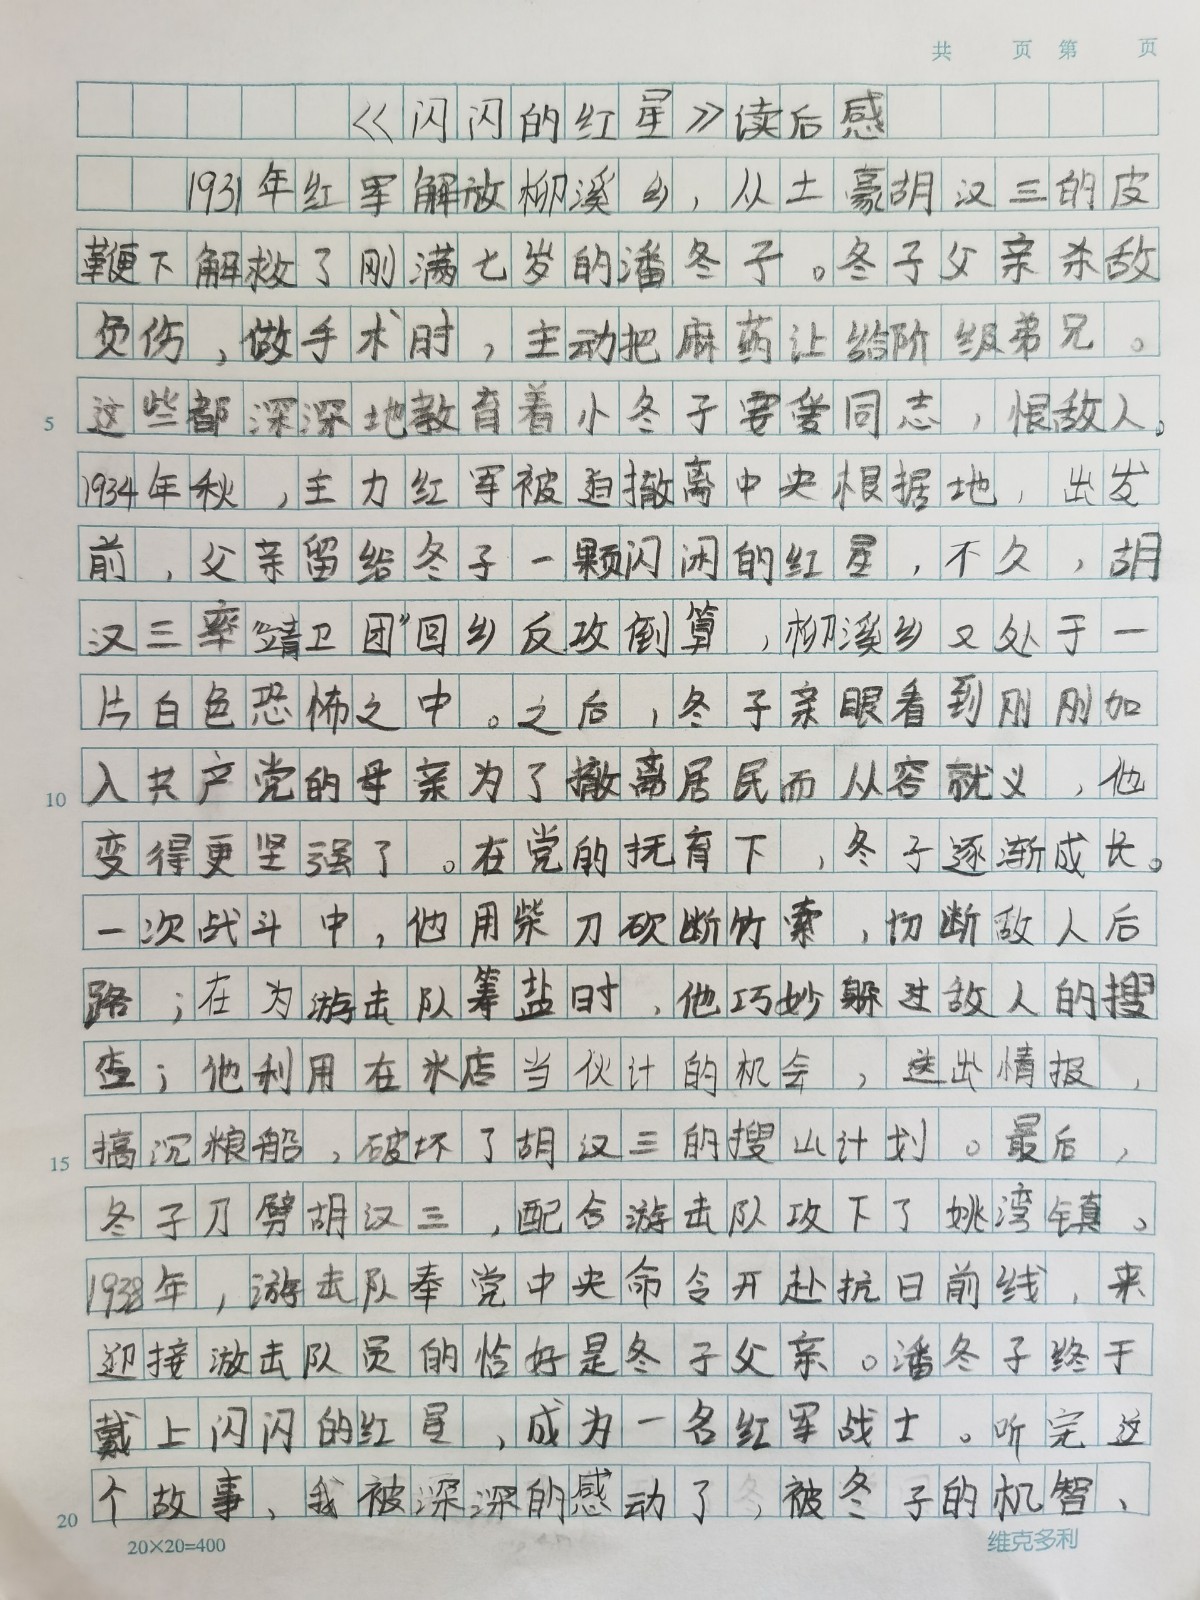 共 页 第 页
《闪闪的红星》读后感
1931年红军解放柳溪乡，从土豪胡汉三的皮
鞭下解救了刚满七岁的潘冬子。冬子父亲杀敌
负伤，做手术时，主动把麻药让给阶级弟兄。
5 这些都深深地教育着小冬子要爱同志，恨敌人。
1934年秋，主力红军被迫撤离中央根据地，出发
前，父亲留给冬子一颗闪闲的红星，不久，胡
汉三率“靖卫团”回乡反攻倒算，柳溪乡又处于一
片白色恐怖之中。之后，冬子亲眼看到刚刚加
10 入共产党的母亲为了撤离居民而从容就义，他
变得更坚强了。在党的抚育下，冬子逐渐成长。
一次战斗中，他用柴刀砍断竹索，切断敌人后
路；在为游击队筹盐时，他巧妙躲过敌人的搜
查；他利用在米店当伙计的机会，送出情报，
15 搞沉粮船，破坏了胡汉三的搜山计划。最后，
冬子刀劈胡汉三，配合游击队攻下了姚湾镇。
1938年，游击队奉党中央命令开赴抗日前线，来
迎接游击队员的恰好是冬子父亲。潘冬子终于
戴上闪闪的红星，成为一名红军战士。听完这
20 个故事、我被深深的感动了，被冬子的机智、
20×20=400 维克多利